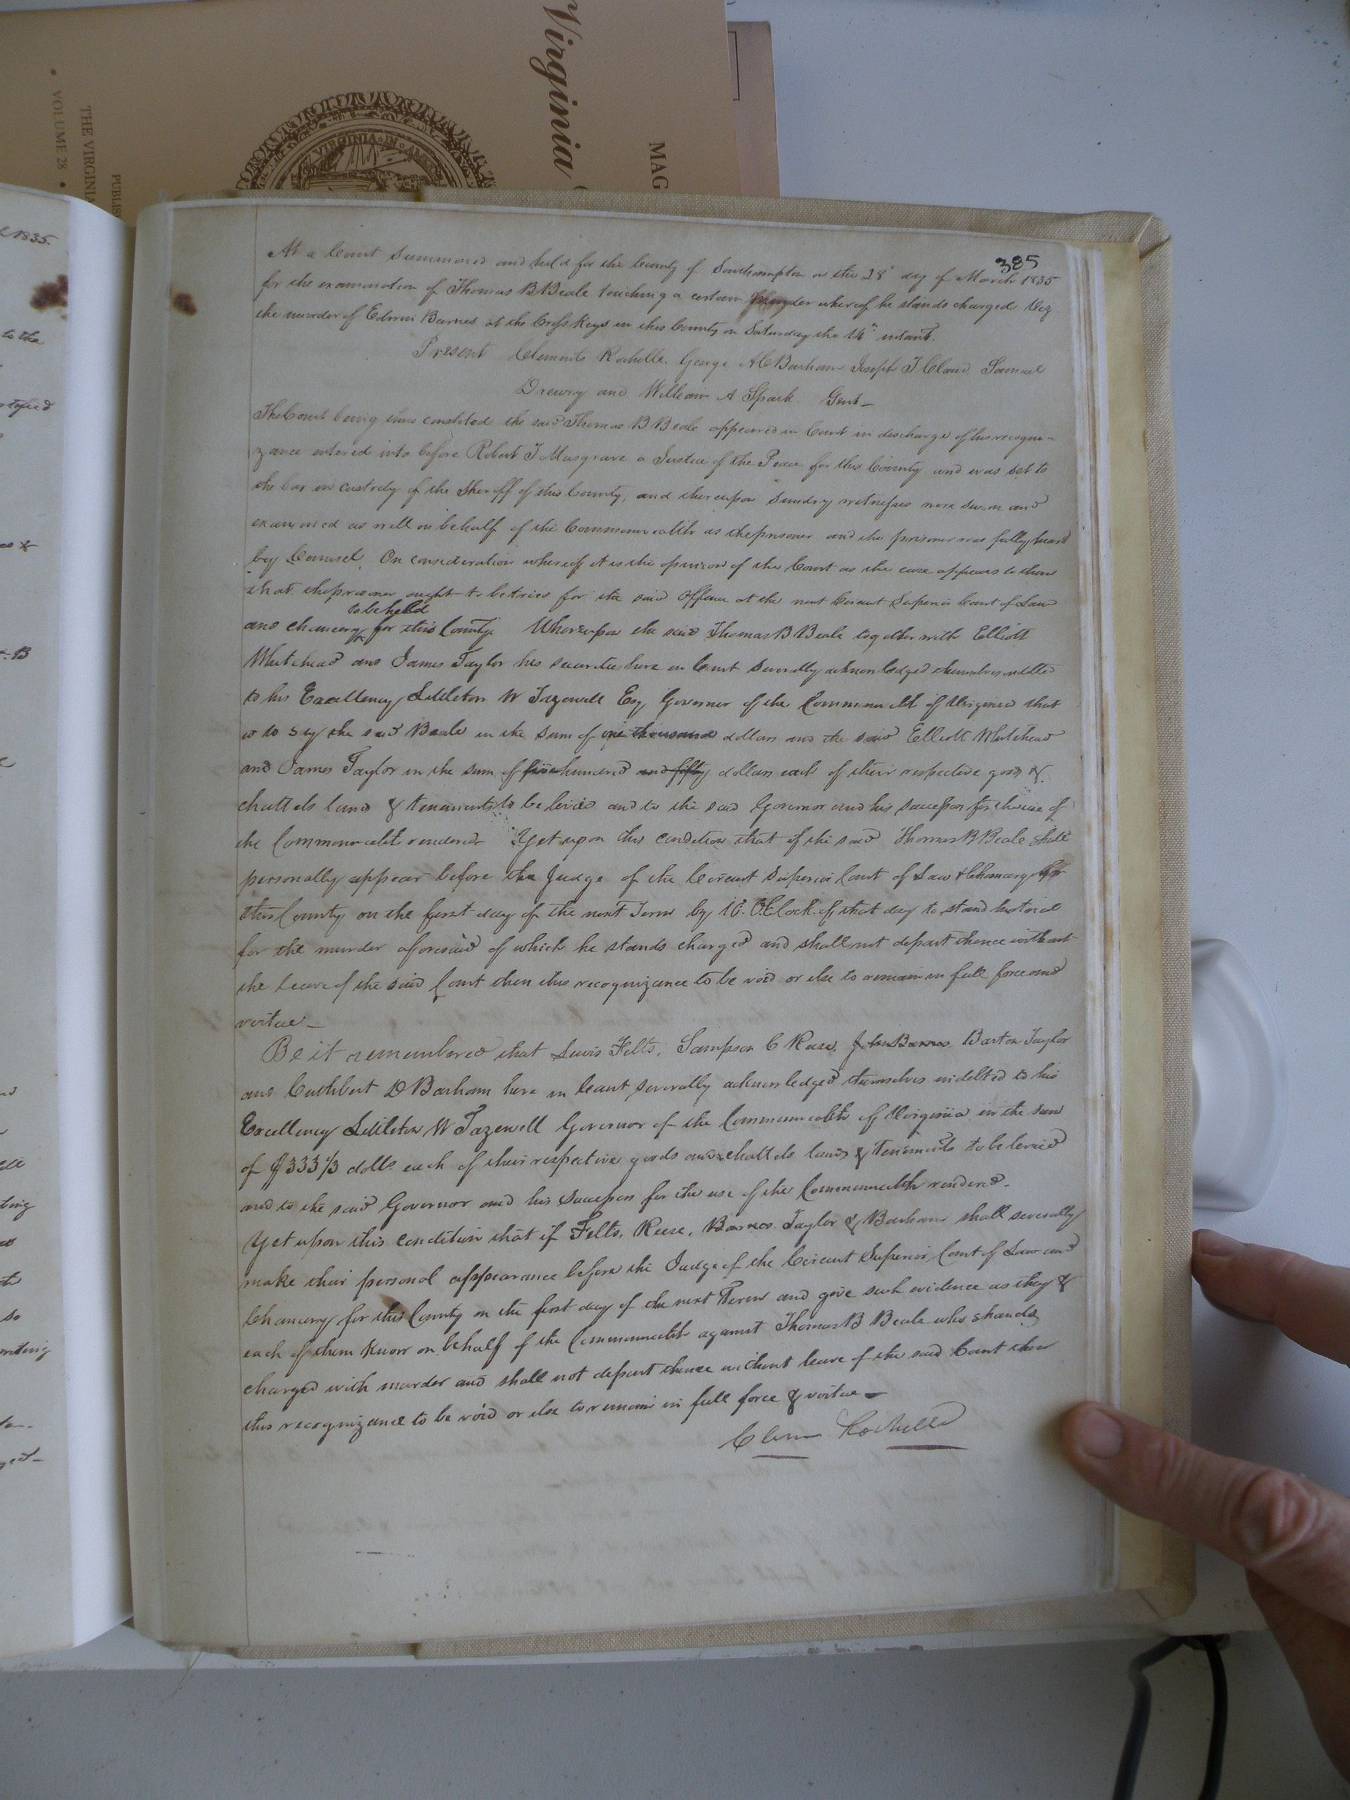 Virginia
MAG
VIRGINIA
THE VIRGINIA
VOLUME 28
PUBLIS
1835.
385
At a Court Summoned and held for the County of Southampton on the 28th day of March 1835
for the examination of Thomas B Beale touching a certain murder whereof he stands charged Viz
the murder of Edwin Barnes at the Cross Keys in this County on Saturday the 14th instant.
Present Clements Rochelle, George A C Barham Joseph T Claud Samuel
Drewry and William A Spark Gent—
The Court being thus constituted the said Thomas B Beale appeared in Court in discharge of his recogni-
zance entered into before Robert T Musgrave a Justice of the Peace for this County and was set to
the bar in custody of the Sheriff of this County, and thereupon Sundry witnesses were sworn and
examined as well on behalf of the Commonwealth as the prisoner and the prisoner was fully heard
by Counsel. On consideration whereof it is the opinion of the Court as the case appears to them
that the prisoner ought to be tried for the said Offence at the next Circuit Superior Court of Law
to be held
and chancery for this County. Whereupon the said Thomas B Beale together with Elliott
Whitehead and James Taylor his securities here in Court Severally acknowledged themselves indebted
to his Excellency Littleton W Tazewell Esq Governor of the Commonwealth of Virginia that
is to say the said Beale in the sum of one thousand dollars and the said Elliott Whitehead
and James Taylor in the sum of five hundred and fifty dollars each of their respective goods &
chattels land & tenements to be levied and to the said Governor and his successors for the use of
the Commonwealth rendered. Yet upon this condition that if the said Thomas B Beale shall
personally appear before the Judge of the Circuit Superior Court of Law & Chancery for
this County on the first day of the next Term by 10 O'Clock of that day to stand his trial
for the murder aforesaid of which he stands charged and shall not depart thence without
the leave of the said Court then this recognizance to be void or else to remain in full force and
virtue—
Be it remembered that Lewis Felts, Sampson C Reese, John Barnes Barton Taylor
and Cuthbert D Barham here in Court severally acknowledged themselves indebted to his
Excellency Littleton W Tazewell Governor of the Commonwealth of Virginia in the sum
of $333 1/3 dolls each of their respective goods and chattels lands & tenements to be levied
and to the said Governor and his Successors for the use of the Commonwealth rendered.
Yet upon this condition that if Felts, Reese, Barnes Taylor & Barham shall severally
make their personal appearance before the Judge of the Circuit Superior Court of Law and
Chancery for this County on the first day of the next Term and give such evidence as they &
each of them know on behalf of the Commonwealth against Thomas B Beale who stands
charged with murder and shall not depart thence without leave of the said Court then
this recognizance to be void or else to remain in full force & virtue—
Clem Rochelle